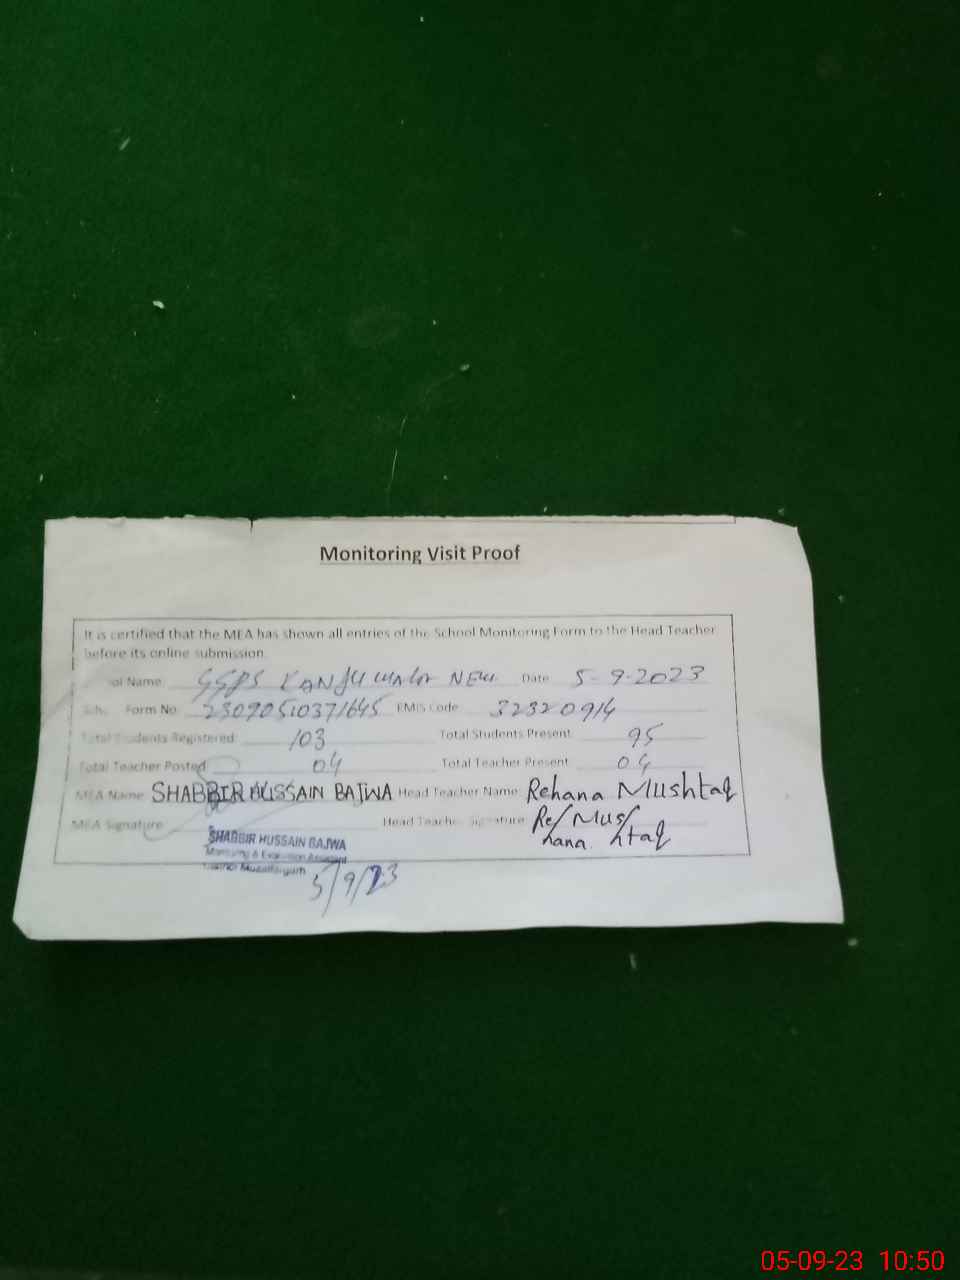 Monitoring Visit Proof
It is certified that the MEA has shown all entries of the School Monitoring Form to the Head Teacher
before its online submission.
ol Name: GGPS KANJU WALA NEW Date 5-9-2023
Form No. 23090510371645 EMIS Code 32320914
Total Students Registered: 103 Total Students Present 95
Total Teacher Posted 04 Total Teacher Present 04
MEA Name: SHABBIR HUSSAIN BAJWA Head Teacher Name: Rehana Mushtaq
MEA Signature Head Teacher Signature: Re/Mus/
hana htaq
SHABBIR HUSSAIN BAJWA
Monitoring & Evaluation Assistant
District Muzaffargarh
5/9/23
05-09-23 10:50